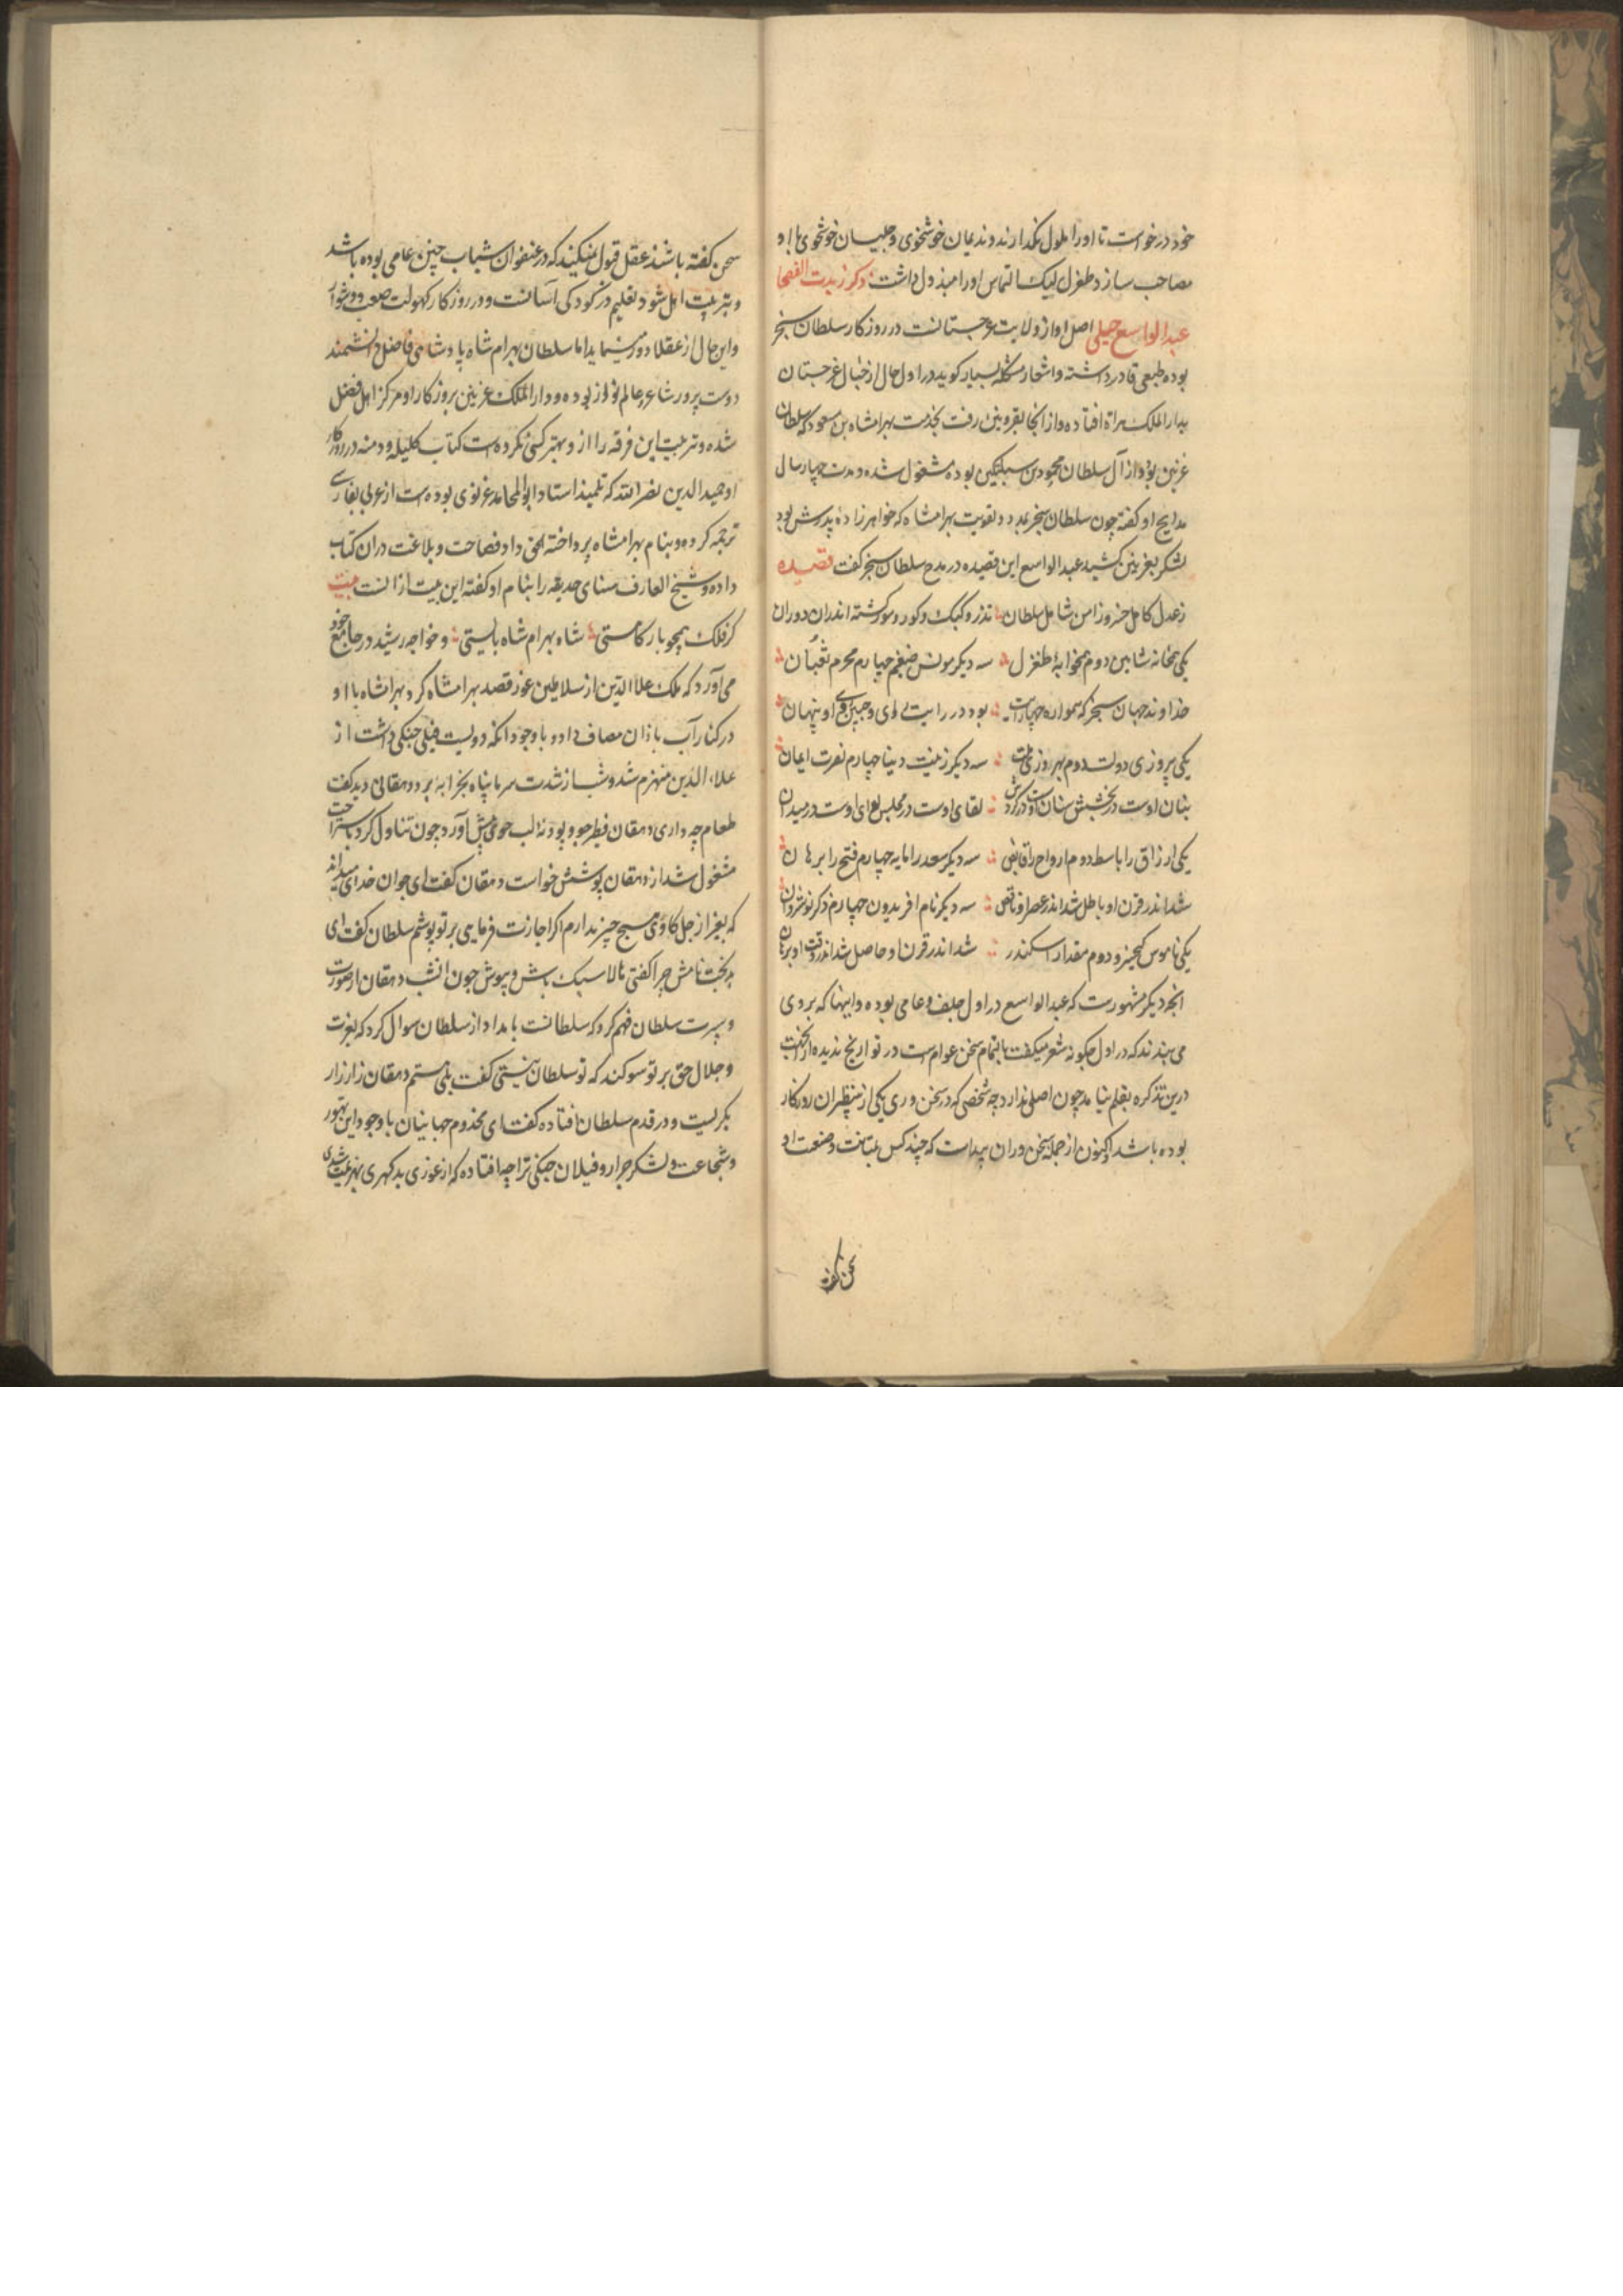 خود درخواست تا اورا ملول نگذارند و ندیمان خوشخوی و جلیسان خوشخوی با او
مصاحب سازد طغرل بیک التماس اورا مبذول داشت ذکر زبدت الفصحا
عبدالواسع جبلی اصل او از ولایت غرجستانست در روزکار سلطان سنجر
بوده طبعی قادر داشته و اشعار مشکله بسیار کوید در اول حال از جبال غرجستان
بدار الملک هراة افتاده و از انجا بغزنین رفت بخدمت بهرامشاه بن مسعود که سلطان
غزنین بود و از آل سلطان محمود بن سبکتکین بوده مشغول شده و مدت چهار سال
مدایح او کفته چون سلطان سنجر بمدد و تقویت بهرامشاه که خواهرزاده پدرش بود
لشکر بغزنین کشید عبدالواسع این قصیده در مدح سلطان سنجر کفت قصیده
ز عدل کامل خسرو ز امن شامل سلطان تذرو و کبک و کور و مور کشته اندران دوران
یکی همخانه شاهین دوم همخوابه طغرل سه دیکر مونس ضیغم چهارم محرم ثعبان
خداوند جهان سنجر که همواره چهارایت بود در رایت و رای و جبین و روی او پنهان
یکی پیروزی دولت دوم بهروزی ملت سه دیکر زینت دنیا چهارم نصرت ایمان
بنان اوست در بخشش سنان اوست در کوشش لقای اوست در مجلس لوای اوست در میدان
یکی ارزاق را باسط دوم ارواح را قابض سه دیکر سعد را مایه چهارم فتح را برهان
شد اندر قرن او باطل شد اندر عصر او ناقص سه دیکر نام افریدون چهارم ذکر نوشروان
یکی ناموس کیخسرو دوم مقدار اسکندر شد اندر قرن او حاصل شد اندر وقت او
انچه دیکر مشهورست که عبدالواسع در اول جلف و عامی بوده و ابیهنا که بروی
می بندند که در اول چکونه شعر میکفت بالتمام سخن عوام است در تواریخ ندیده ام
درین تذکره بقلم نیامد چون اصلی ندارد چه شخصی که در سخن وری یکی از بینظیران روزکار
بوده باشد و اکنون از جمله سخن وران پیداست که چند کس بمتانت و صنعت او
سخن کفته
سخن کفته باشند عقل قبول نمیکند که در عنفوان شباب چنین عامی بوده باشد
و بتربیت اهل شود تعلیم در کودکی آسانست و در روزکار کهولت صعب و دشوار
و این حال از عقلا دور مینماید اما سلطان بهرام شاه پادشاهی فاضل دانشمند
دوست پرور شاعر و عالم نواز بوده و دار الملک غزنین بروزکار او مرکز اهل فضل
شده و تربیت این فرقه را از و بهتر کسی نکرده است کتاب کلیله و دمنه در روزکار
او حمیدالدین نصرالله که تلمیذ استاد ابوالمحامد غزنوی بوده است از عربی بفارسی
ترجمه کرده و بنام بهرامشاه پرداخته الحق داد فصاحت و بلاغت دران کتاب
داده و شیخ العارف سنای حدیقه را بنام او کفته این بیت از انست بیت
کر فلک همچو بارکاهستی شاه بهرام شاه بایستی و خواجه رشید در جامع خود
می آورد که ملک علاالدین از سلاطین غور قصد بهرامشاه کرد بهرامشاه با او
در کنار آب باران مصاف داد و با وجود انکه دویست فیل جنکی داشت از
علاء الدین منهزم شد و شب از شدت سرما پناه بخرابه برد دهقانی دید کفت
طعام چه داری دهقان فطیر جو و پودنه لب جوی پیش آورد چون تناول کرد باستراحت
مشغول شد از دهقان پوشش خواست دهقان کفت ای جوان خدای میداند
که بغیر از جل کاوی هیچ چیز ندارم اکر اجازت فرمایی بر تو پوشم سلطان کفت ای
بدبخت نامش چرا کفتی حالا سبک باش و بپوش چون دهقان از صورت
و سیرت سلطان فهم کرد که سلطانست بامداد از سلطان سوال کرد که بعزت
و جلال حق بر تو سوکند که تو سلطان نیستی کفت بلی هستم دهقان زار زار
بکریست و در قدم سلطان افتاده کفت ای مخدوم جهانیان با وجود این تهور
و شجاعت و لشکر جرار و فیلان جنکی ترا چه افتاده که از غوزی بدکهری بهزیمت شدی